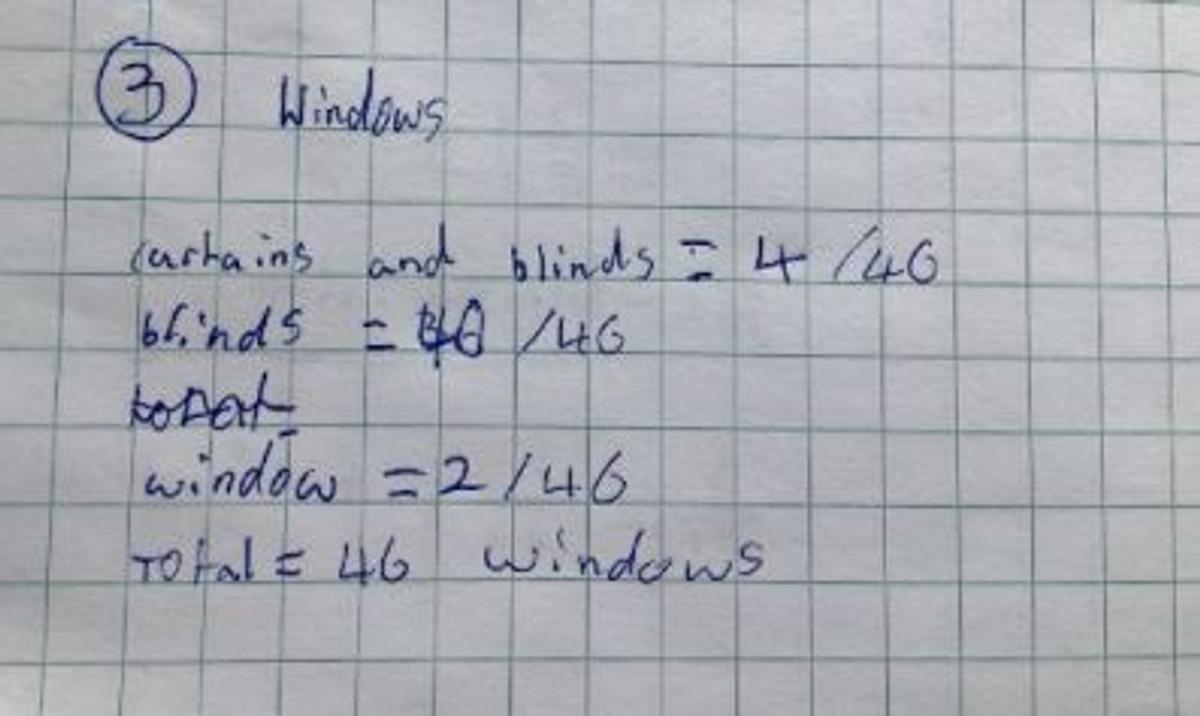 3 Windows
curtains and blinds = 4/46
blinds = 40/46
total =
window = 2/46
Total = 46 windows